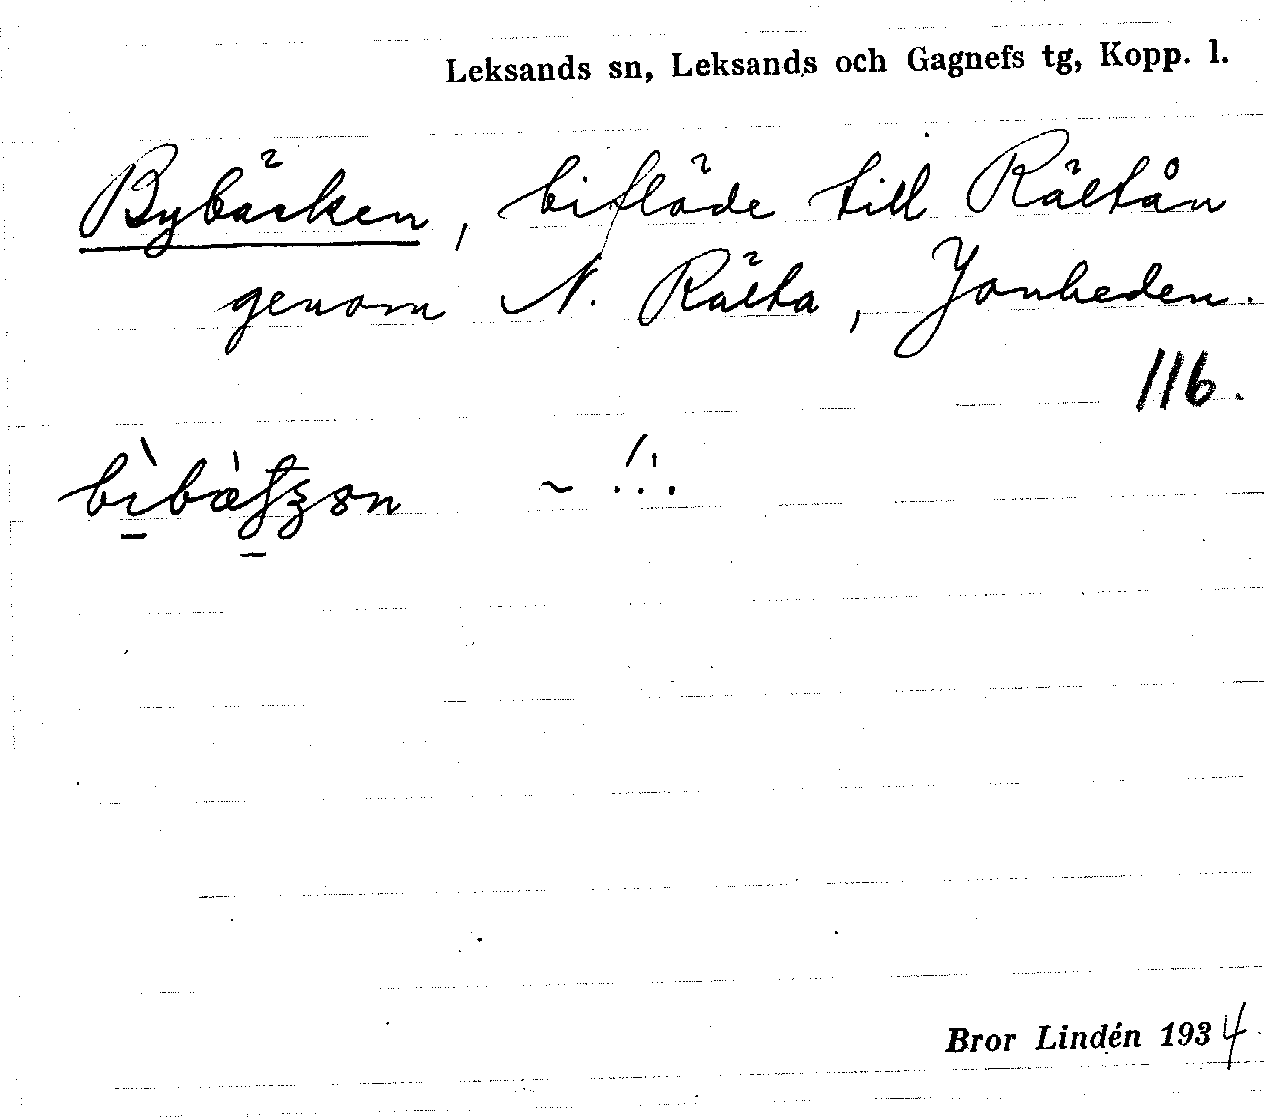 Leksands sn, Leksands och Gagnefs tg, Kopp. l.
Bybäcken, biflöde till Rältån
genom N. Rälta, Jonheden.
116.
Bror Lindén 1934